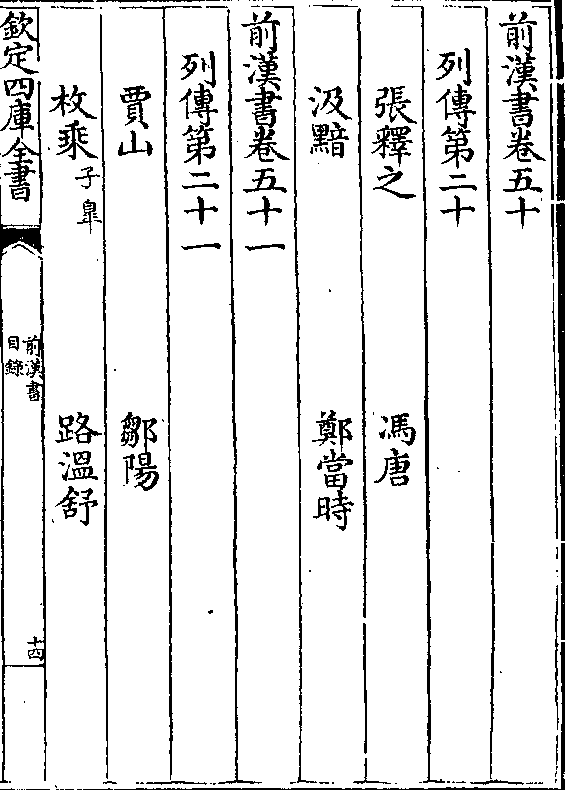 前漢書卷五十
列傳第二十
張釋之 馮唐
汲黯 鄭當時
前漢書卷五十一
列傳第二十一
賈山 鄒陽
枚乘子臯 路溫舒
欽定四庫全書
前漢書
目錄
十四